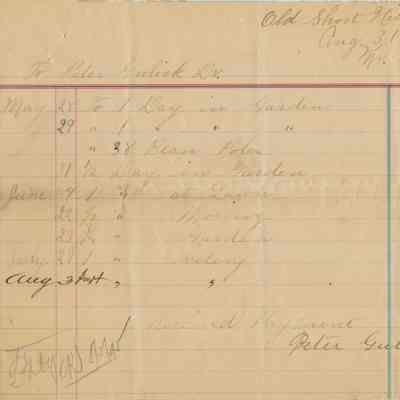 Old Short Hil
Aug 31
Mr.
To Peter Gulick Dr.
May 28 To 1 Day in Garden
29 " 1 " " "
" 38 Bean Poles
31 ½ Day in Garden
June 9 1 at
22 ½ " Mowing
23 ½ " Garden
28 1 "
Aug 3
Received Payment
Peter Gul